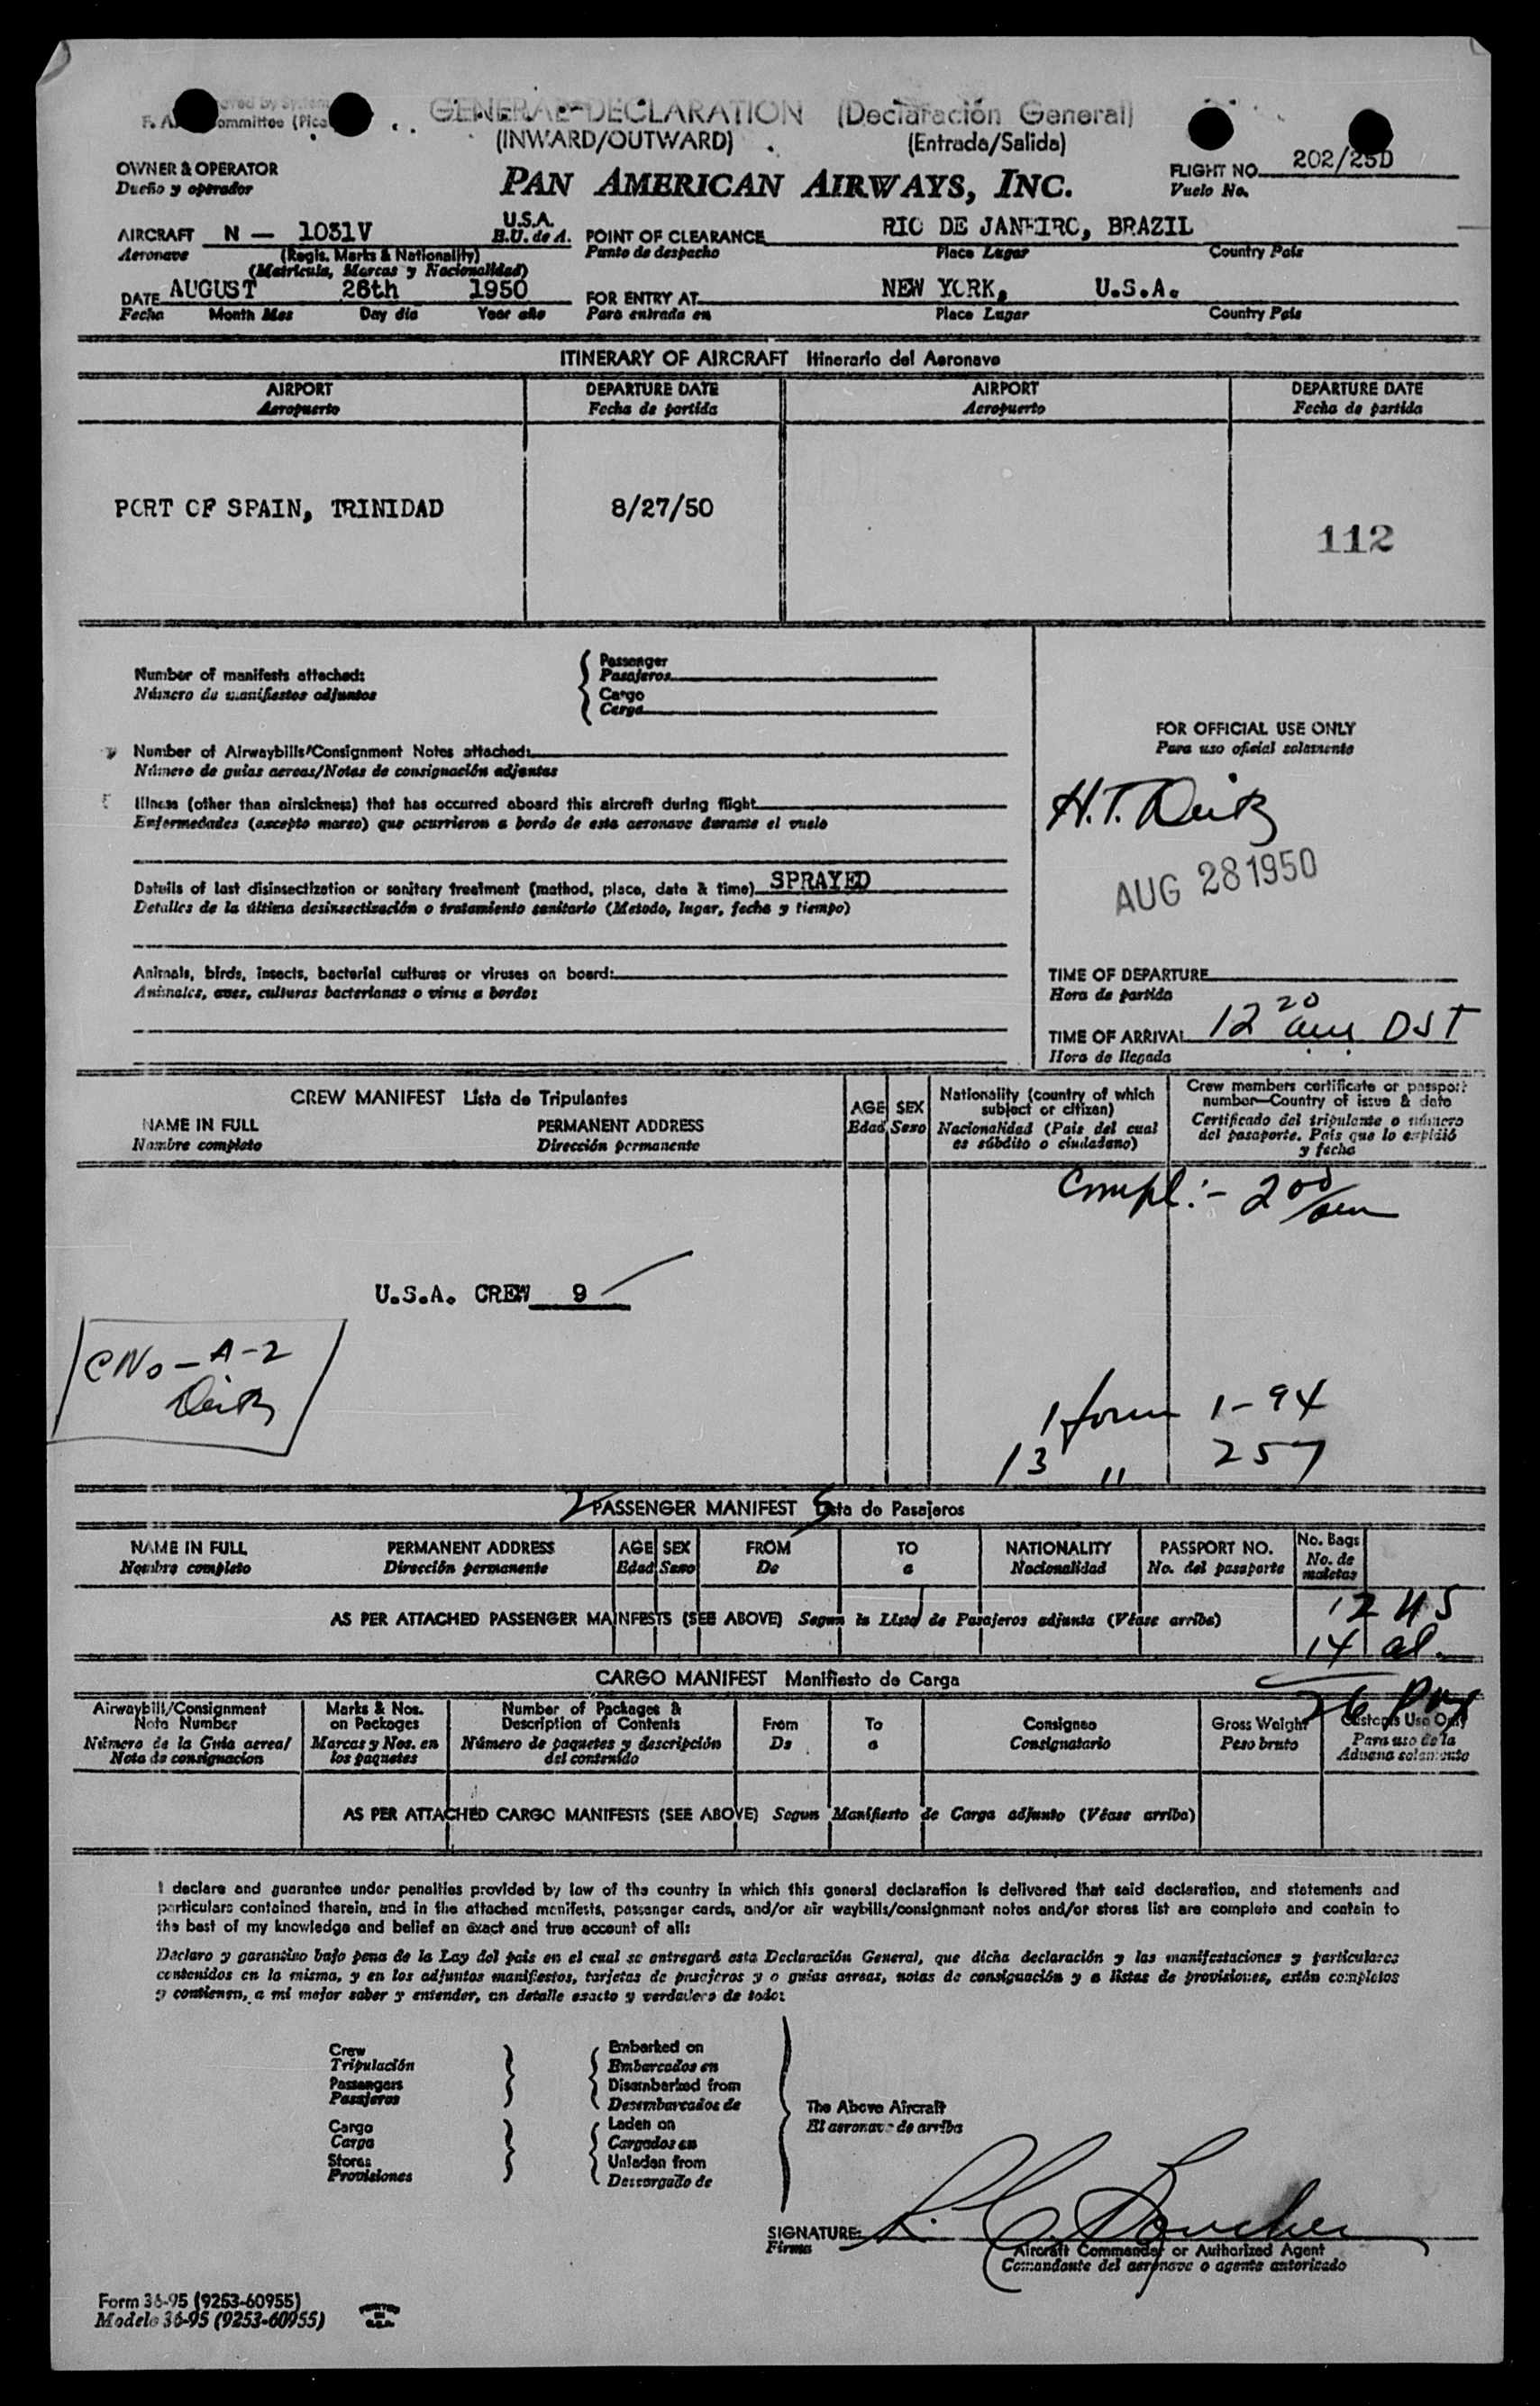 GENERAL DECLARATION (Declaración General)
F. A. Committee
(INWARD/OUTWARD) (Entrada/Salida)
OWNER & OPERATOR
Dueño y operador
PAN AMERICAN AIRWAYS, INC.
FLIGHT NO. 202/25D
Vuelo No.
AIRCRAFT N — 1031V U.S.A.
Aeronave (Regis. Marks & Nationality) E.U. de A.
(Matricula, Marcas y Nacionalidad)
POINT OF CLEARANCE RIO DE JANEIRO, BRAZIL
Punto de despacho Place Lugar Country País
DATE AUGUST 26th 1950
Fecha Month Mes Day dia Year año
FOR ENTRY AT NEW YORK, U.S.A.
Para entrada en Place Lugar Country País
ITINERARY OF AIRCRAFT Itinerario del Aeronave
AIRPORT DEPARTURE DATE AIRPORT DEPARTURE DATE
Aeropuerto Fecha de partida Aeropuerto Fecha de partida
PORT OF SPAIN, TRINIDAD 8/27/50
112
Number of manifests attached:
Número de manifiestos adjuntos
Passenger
Pasajeros
Cargo
Carga
Number of Airwaybills/Consignment Notes attached:
Número de guias aereas/Notas de consignación adjuntas
Illness (other than airsickness) that has occurred aboard this aircraft during flight
Enfermedades (excepto mareo) que ocurrieron a bordo de esta aeronave durante el vuelo
Details of last disinsectization or sanitary treatment (method, place, date & time) SPRAYED
Detalles de la última desinsectización o tratamiento sanitario (Metodo, lugar, fecha y tiempo)
Animals, birds, insects, bacterial cultures or viruses on board:
Animales, aves, culturas bacterianas o virus a bordo:
FOR OFFICIAL USE ONLY
Para uso oficial solamente
H.T. Deitz
AUG 28 1950
TIME OF DEPARTURE
Hora de partida
TIME OF ARRIVAL 12 20 am DST
Hora de llegada
CREW MANIFEST Lista de Tripulantes
NAME IN FULL PERMANENT ADDRESS
Nombre completo Dirección permanente
AGE SEX
Edad Sexo
Nationality (country of which
subject or citizen)
Nacionalidad (País del cual
es súbdito o ciudadano)
Crew members certificate or passport
number—Country of issue & date
Certificado del tripulante o número
del pasaporte. País que lo expidió
y fecha
Compl:- 2 00/am
U.S.A. CREW 9
CNo-A-2
Deitz
1 form 1-94
13 " 257
2 PASSENGER MANIFEST 5 Lista de Pasajeros
NAME IN FULL PERMANENT ADDRESS AGE SEX FROM TO NATIONALITY PASSPORT NO. No. Bags
Nombre completo Dirección permanente Edad Sexo De a Nacionalidad No. del pasaporte No. de
maletas
AS PER ATTACHED PASSENGER MAINFESTS (SEE ABOVE) Segun la Lista de Pasajeros adjunta (Véase arriba)
12 US
14 al.
26
CARGO MANIFEST Manifiesto de Carga
Airwaybill/Consignment
Note Number
Número de la Guía aerea/
Nota de consignacion
Marks & Nos.
on Packages
Marcas y Nos. en
los paquetes
Number of Packages &
Description of Contents
Número de paquetes y descripción
del contenido
From
De
To
a
Consignee
Consignatario
Gross Weight
Peso bruto
Customs Use Only
Para uso de la
Aduana solamente
AS PER ATTACHED CARGO MANIFESTS (SEE ABOVE) Segun Manifiesto de Carga adjunto (Véase arriba)
I declare and guarantee under penalties provided by law of the country in which this general declaration is delivered that said declaration, and statements and
particulars contained therein, and in the attached manifests, passenger cards, and/or air waybills/consignment notes and/or stores list are complete and contain to
the best of my knowledge and belief an exact and true account of all:
Declaro y garantizo bajo pena de la Ley del pais en el cual se entregará esta Declaración General, que dicha declaración y las manifestaciones y particulares
contenidos en la misma, y en los adjuntos manifiestos, tarjetas de pasajeros y o guias aereas, notas de consignación y a listas de provisiones, están completos
y contienen, a mi mejor saber y entender, un detalle exacto y verdadero de todo:
Crew
Tripulación
Passengers
Pasajeros
Cargo
Carga
Stores
Provisiones
Embarked on
Embarcados en
Disembarked from
Desembarcados de
Laden on
Cargados en
Unladen from
Descargado de
The Above Aircraft
El aeronave de arriba
SIGNATURE:
Firma
Aircraft Commander or Authorized Agent
Comandante del aeronave o agente autorizado
Form 36-95 (9253-60955)
Modelo 36-95 (9253-60955)
PRINTED
IN
U.S.A.